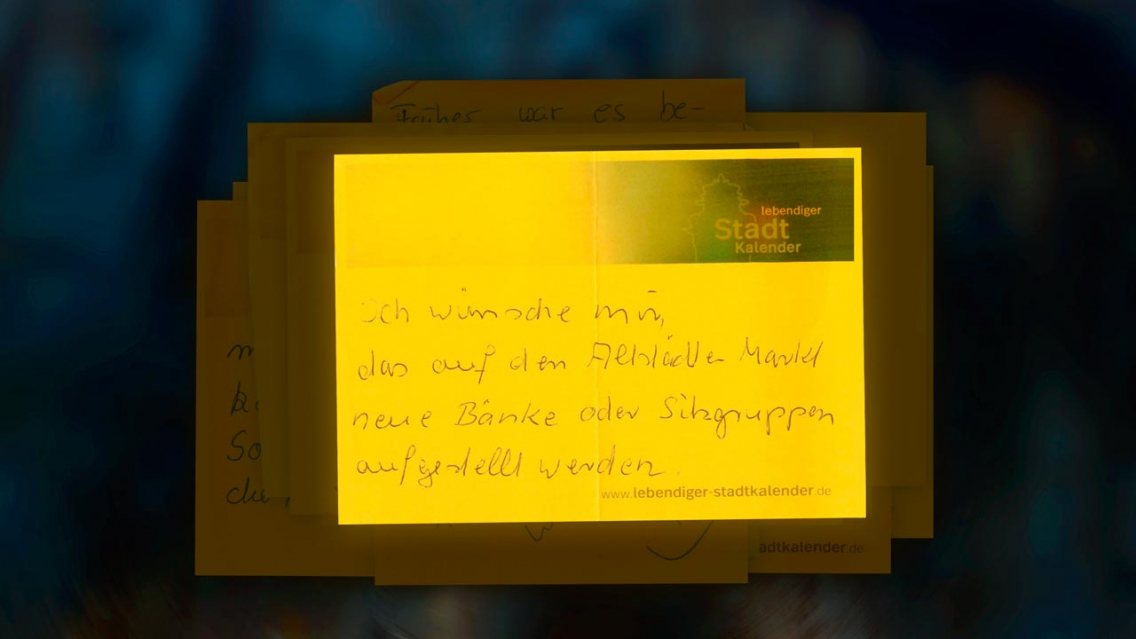 Früher war es be-
lebendiger
Stadt
Kalender
Ich wünsche mir,
das auf den Altstädter Markt
neue Bänke oder Sitzgruppen
aufgestellt werden.
www.lebendiger-stadtkalender.de
So
adtkalender.de